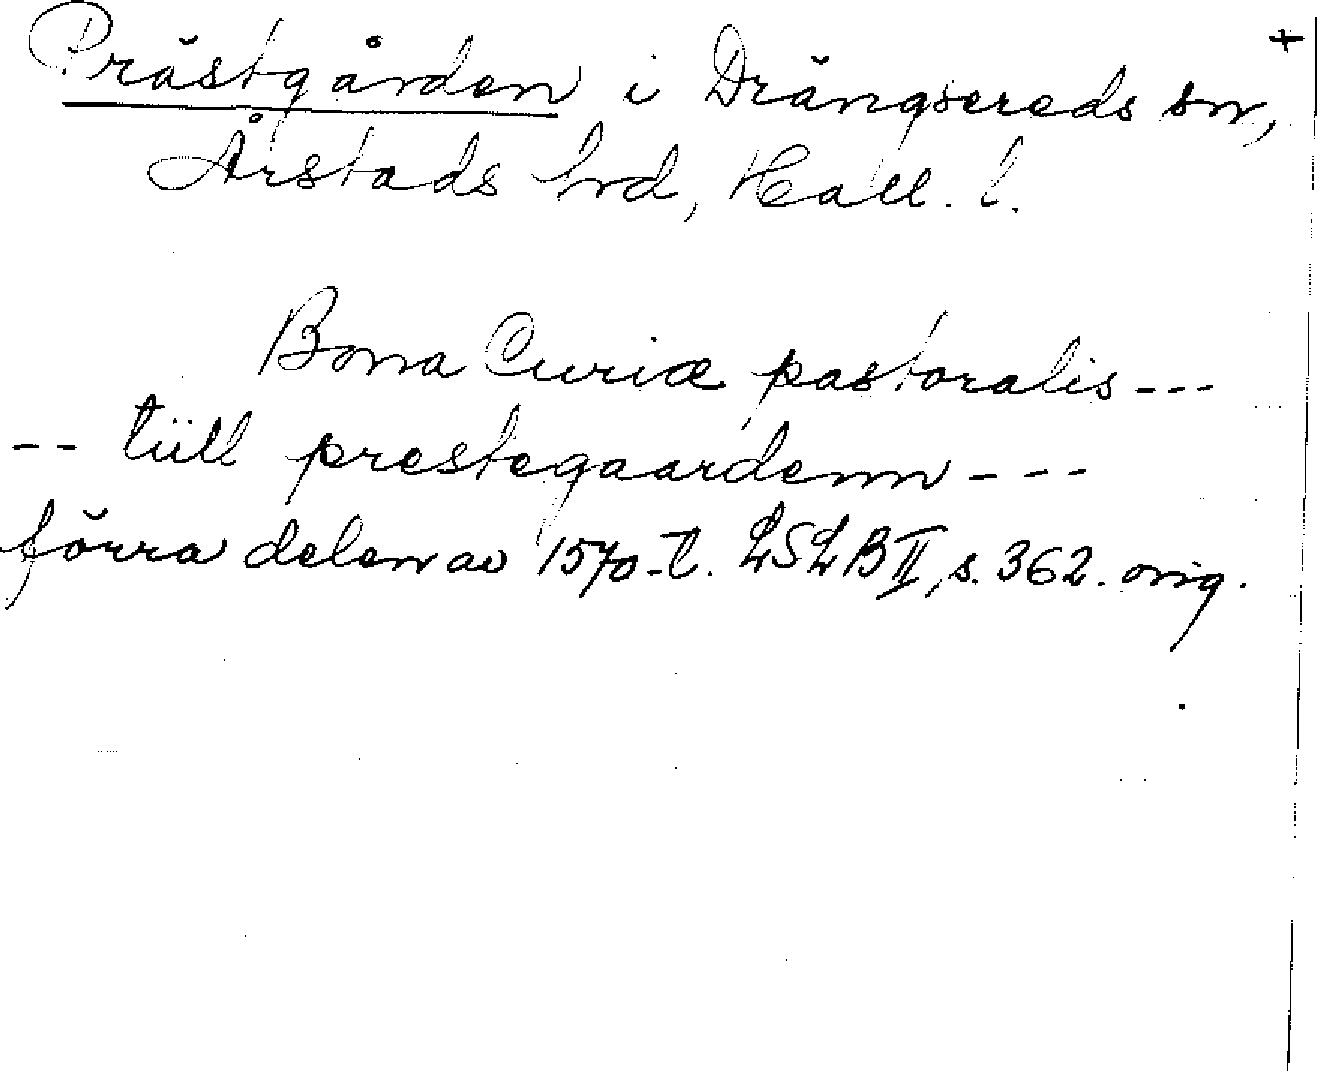 Prästgården i Drängsereds sn, +
Årstads hrd, Hall. l.
Bona Curiæ pastoralis ---
-- tiill prestegaardenn ---
förra delen av 1570-t. LSLB II, s. 362. orig.